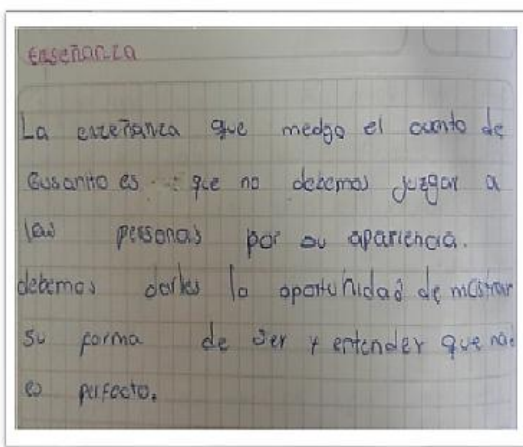 Enseñanza
La enzeñanza que medgo el cuento de
Gusanito es que no debemos juzgar a
las personas por su apariencia.
debemos darles la oportunidad de mostrar
su forma de ser y entender que nadie
es perfecto.